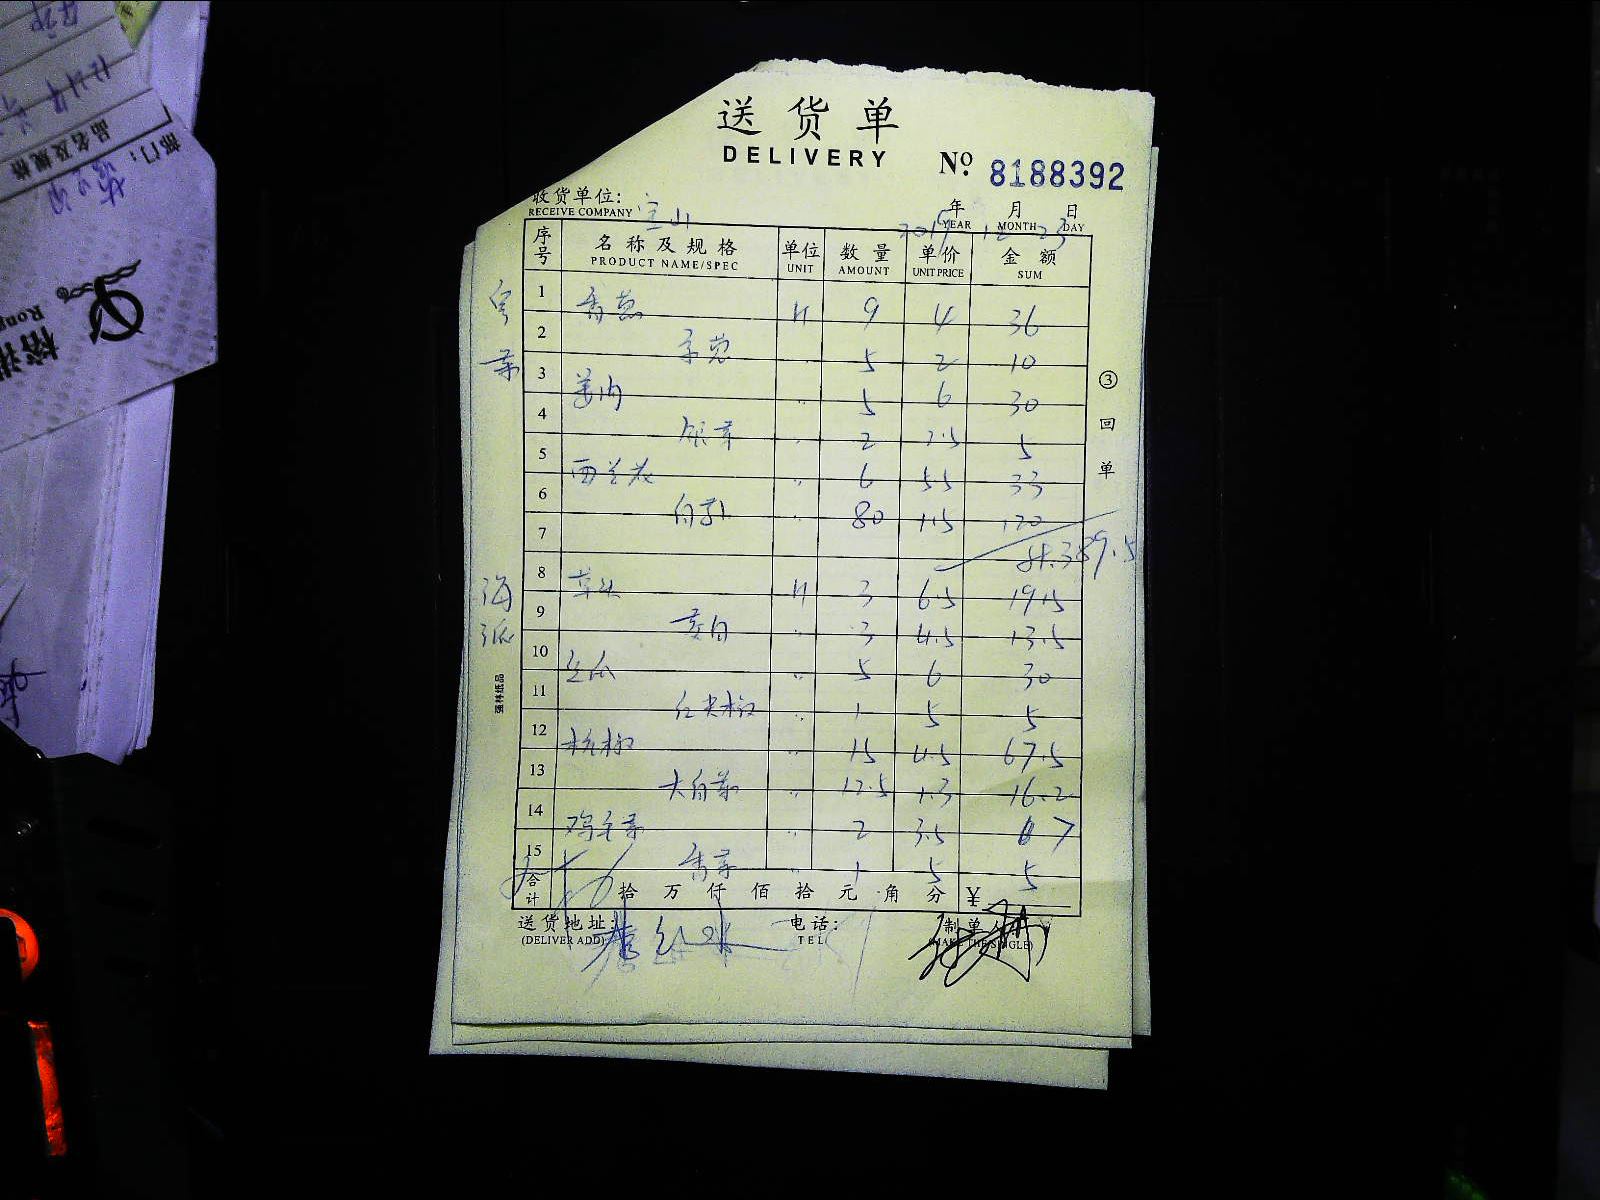 送货单
DELIVERY
No 8188392
收货单位: 宝山
RECEIVE COMPANY
年 月 日
YEAR MONTH DAY
序号 名称及规格 单位 数量 单价 金额
PRODUCT NAME/SPEC UNIT AMOUNT UNIT PRICE SUM
1 香葱 斤 9 4 36
2 5 2 10
3 姜肉 5 6 30
4 银芽 2 2.5 5
5 西兰花 6 5.5 33
6 80 1.5 120
7 389.5
8 草头 斤 3 6.5 19.5
9 茭白 3 4.5 13.5
10 5 6 30
11 红尖椒 1 5 5
12 杭椒 15 4.5 67.5
13 大白菜 12.5 1.3 16.2
14 鸡毛菜 2 3.5 7
15 香菜 1 5 5
合计 拾 万 仟 佰 拾 元 角 分 ¥
送货地址: 电话: 制单
(DELIVER ADD) TEL
③
回
单
粤
菜
海
派
强林纸品
部门:
品名及规格